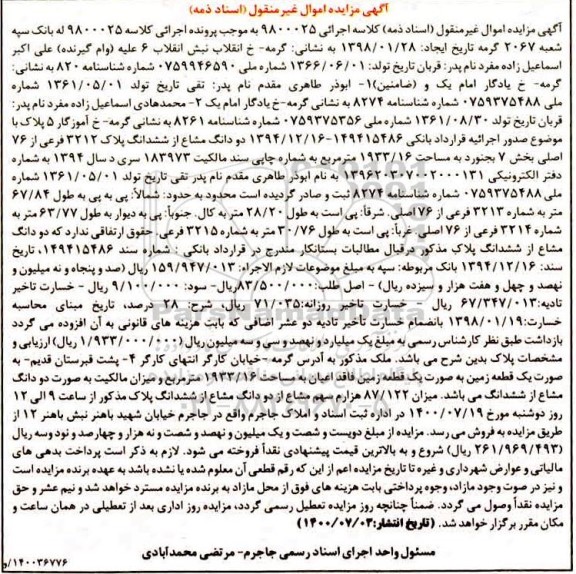 آگهی مزایده اموال غیرمنقول (اسناد ذمه)
آگهی مزایده اموال غیرمنقول (اسناد ذمه) کلاسه اجرائی ۹۸۰۰۰۲۵ به موجب پرونده اجرائی کلاسه ۹۸۰۰۰۲۵ له بانک سپه
شعبه ۲۰۶۷ گرمه تاریخ ایجاد: ۱۳۹۸/۰۱/۲۸ به نشانی: گرمه- خ انقلاب نبش انقلاب ۶ علیه (وام گیرنده) علی اکبر
اسماعیل زاده مفرد نام پدر: قربان تاریخ تولد: ۱۳۶۶/۰۶/۰۱ شماره ملی ۰۷۵۹۹۴۶۵۹۰ شماره شناسنامه ۸۲۰ به نشانی:
گرمه- خ یادگار امام یک و (ضامنین)۱- ابوذر طاهری مقدم نام پدر: تقی تاریخ تولد ۱۳۶۱/۰۵/۰۱ شماره
ملی ۰۷۵۹۳۷۵۴۸۸ شماره شناسنامه ۸۲۷۴ به نشانی گرمه-خ یادگار امام یک ۲- محمدهادی اسماعیل زاده مفرد نام پدر:
قربان تاریخ تولد ۱۳۶۱/۰۸/۳۰ شماره ملی ۰۷۵۹۳۷۵۳۵۶ شماره شناسنامه ۸۲۶۱ به نشانی گرمه- خ آموزگار ۵ پلاک با
موضوع صدور اجرائیه قرارداد بانکی ۱۴۹۴۱۵۴۸۶-۱۳۹۴/۱۲/۱۶ دو دانگ مشاع از ششدانگ پلاک ۳۲۱۲ فرعی از ۷۶
اصلی بخش ۷ بجنورد به مساحت ۱۹۳۳/۱۶ مترمربع به شماره چاپی سند مالکیت ۱۸۳۹۷۳ سری د سال ۱۳۹۴ به شماره
دفتر الکترونیکی ۱۳۹۶۲۰۳۰۷۰۰۲۰۰۰۱۳۱ به نام ابوذر طاهری مقدم نام پدر تقی تاریخ تولد ۱۳۶۱/۰۵/۰۱ شماره
ملی ۰۷۵۹۳۷۵۴۸۸ شماره شناسنامه ۸۲۷۴ ثبت و صادر گردیده است محدود به حدود: شمالاً: پی به پی به طول ۶۷/۸۴
متر به شماره ۳۲۱۳ فرعی از ۷۶ اصلی. شرقاً: پی است به طول ۲۸/۲۰ متر به کال. جنوباً: پی به دیوار به طول ۶۳/۷۷ به
شماره ۳۲۱۴ فرعی از ۷۶ اصلی. غرباً: پی است به طول ۳۰/۷۶ متر به شماره ۳۲۱۵ فرعی. حقوق ارتفاقی ندارد که دو دانگ
مشاع از ششدانگ پلاک مذکور درقبال مطالبات بستانکار مندرج در قرارداد بانکی : شماره سند ۱۴۹۴۱۵۴۸۶، تاریخ
سند: ۱۳۹۴/۱۲/۱۶ بانک مربوطه: سپه به مبلغ موضوعات لازم الاجراء: ۱۵۹/۹۴۷/۰۱۳ ریال (صد و پنجاه و نه میلیون و
نهصد و چهل و هفت هزار و سیزده ریال) - اصل طلب: ۸۳/۵۰۰/۰۰۰ریال- سود: ۹/۱۰۰/۰۰۰ ریال - خسارت تاخیر
تادیه: ۶۷/۳۴۷/۰۱۳ ریال - خسارت تأخیر روزانه:۷۱/۰۳۵ ریال، شرح: ۲۸ درصد، تاریخ مبنای محاسبه
خسارت:۱۳۹۸/۰۱/۱۹ بانضمام خسارت تأخیر تادیه دو عشر اضافی که بابت هزینه های قانونی به آن افزوده می گردد
بازداشت طبق نظر کارشناس رسمی به مبلغ یک میلیارد و نهصد و سی و سه میلیون ریال (۱/۹۳۳/۰۰۰/۰۰۰ ریال) ارزیابی و
مشخصات پلاک بدین شرح می باشد. ملک مذکور به آدرس گرمه -خیابان کارگر انتهای کارگر ۴- پشت قبرستان قدیم- به
صورت یک قطعه زمین به صورت یک قطعه زمین فاقد اعیان به مساحت ۱۹۳۳/۱۶ مترمربع و میزان مالکیت به صورت دو دانگ
مشاع از ششدانگ می باشد. میزان ۸۷/۱۲۲ هزارم سهم مشاع از دو دانگ مشاع از ششدانگ پلاک مذکور از ساعت ۹ الی ۱۲
روز دوشنبه مورخ ۱۴۰۰/۰۷/۱۹ در اداره ثبت اسناد و املاک جاجرم واقع در جاجرم خیابان شهید باهنر نبش باهنر ۱۲ از
طریق مزایده به فروش می رسد. مزایده از مبلغ دویست و شصت و یک میلیون و نهصد و شصت و نه هزار و چهارصد و نود وسه ریال
(۲۶۱/۹۶۹/۴۹۳ ریال) شروع و به بالاترین قیمت پیشنهادی نقداً فروخته می شود. لازم به ذکر است پرداخت بدهی های
مالیاتی و عوارض شهرداری و غیره تا تاریخ مزایده اعم از این که رقم قطعی آن معلوم شده یا نشده باشد به عهده برنده مزایده است
و نیز در صورت وجود مازاد، وجوه پرداختی بابت هزینه های فوق از محل مازاد به برنده مزایده مسترد خواهد شد و نیم عشر و حق
مزایده نقداً وصول می گردد. ضمناً چنانچه روز مزایده تعطیل رسمی گردد، مزایده روز اداری بعد از تعطیلی در همان ساعت و
مکان مقرر برگزار خواهد شد. (تاریخ انتشار: ۱۴۰۰/۰۷/۰۳)
مسئول واحد اجرای اسناد رسمی جاجرم- مرتضی محمدآبادی
۱۴۰۰۳۶۷۷۶/و